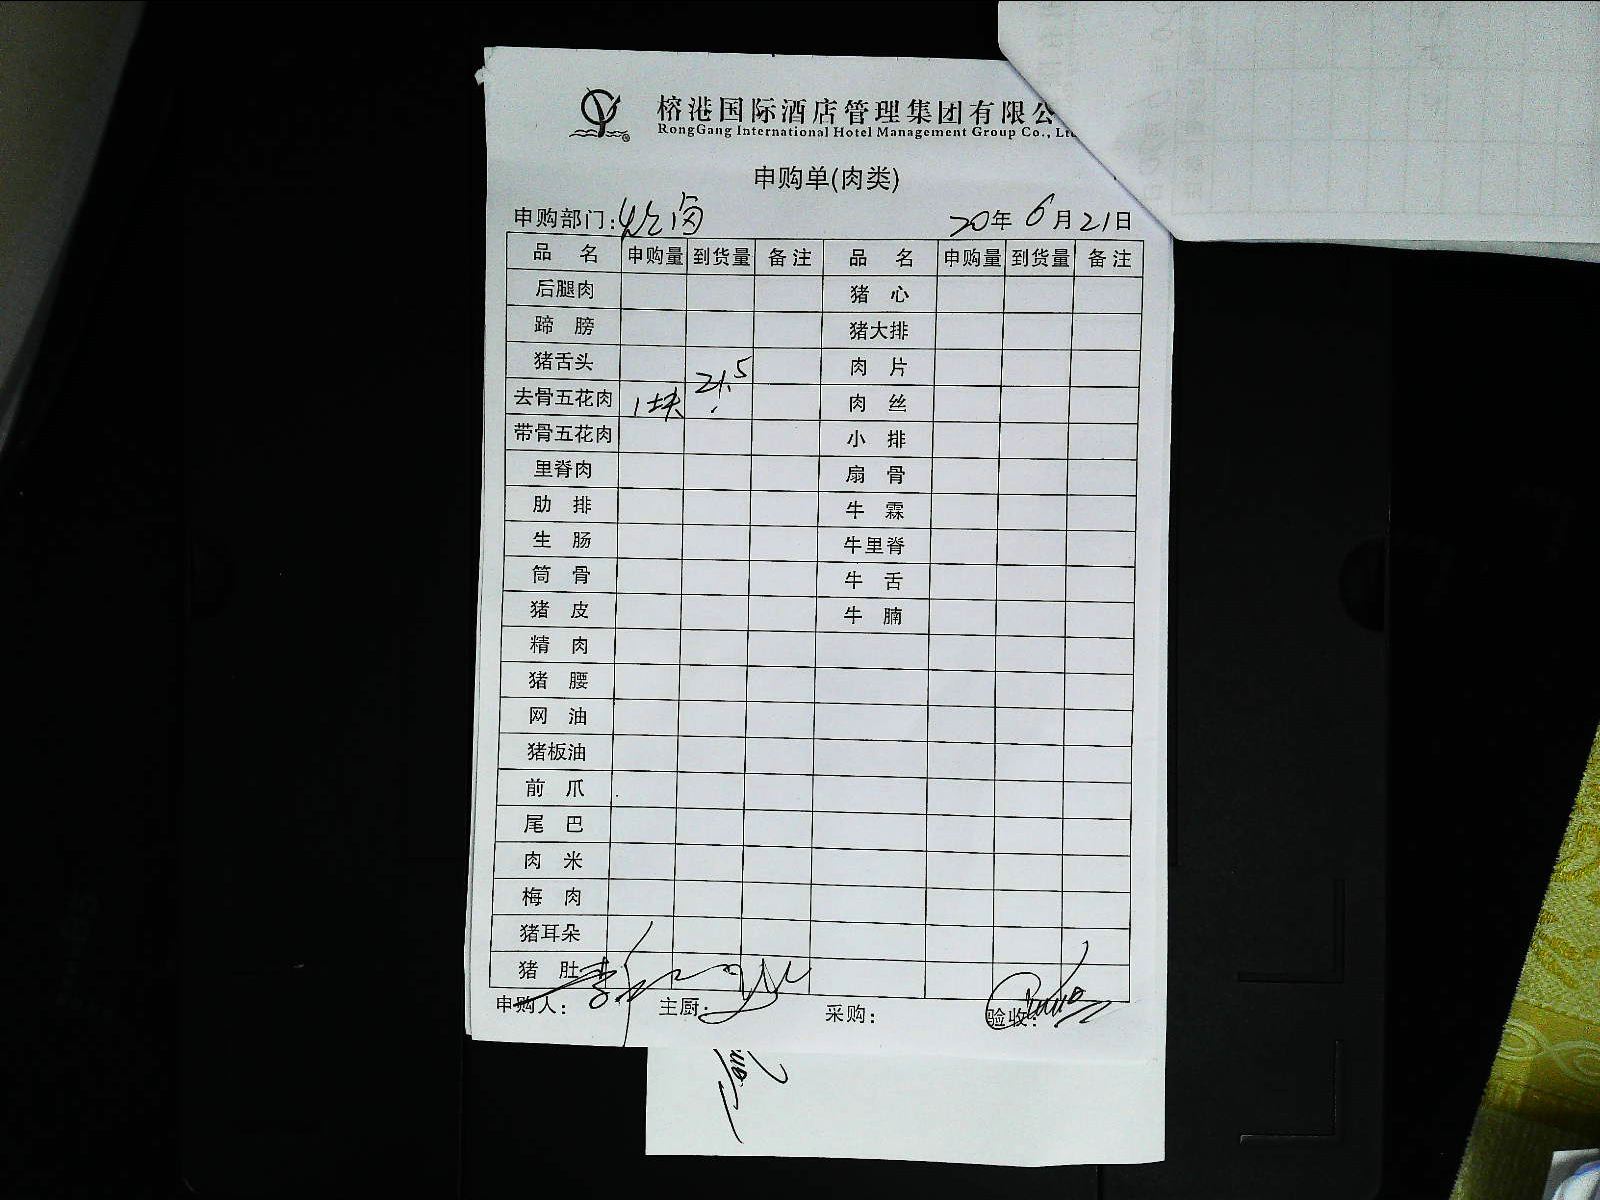 榕港国际酒店管理集团有限公
RongGang International Hotel Management Group Co., Lt
申购单(肉类)
申购部门: 20年 6月21日
品 名 申购量 到货量 备注 品 名 申购量 到货量 备注
后腿肉 猪 心
蹄 膀 猪大排
猪舌头 肉 片
去骨五花肉 1块 21.5 肉 丝
带骨五花肉 小 排
里脊肉 扇 骨
肋 排 牛 霖
生 肠 牛里脊
筒 骨 牛 舌
猪 皮 牛 腩
精 肉
猪 腰
网 油
猪板油
前 爪
尾 巴
肉 米
梅 肉
猪耳朵
猪 肚
申购人: 主厨: 采购: 验收: